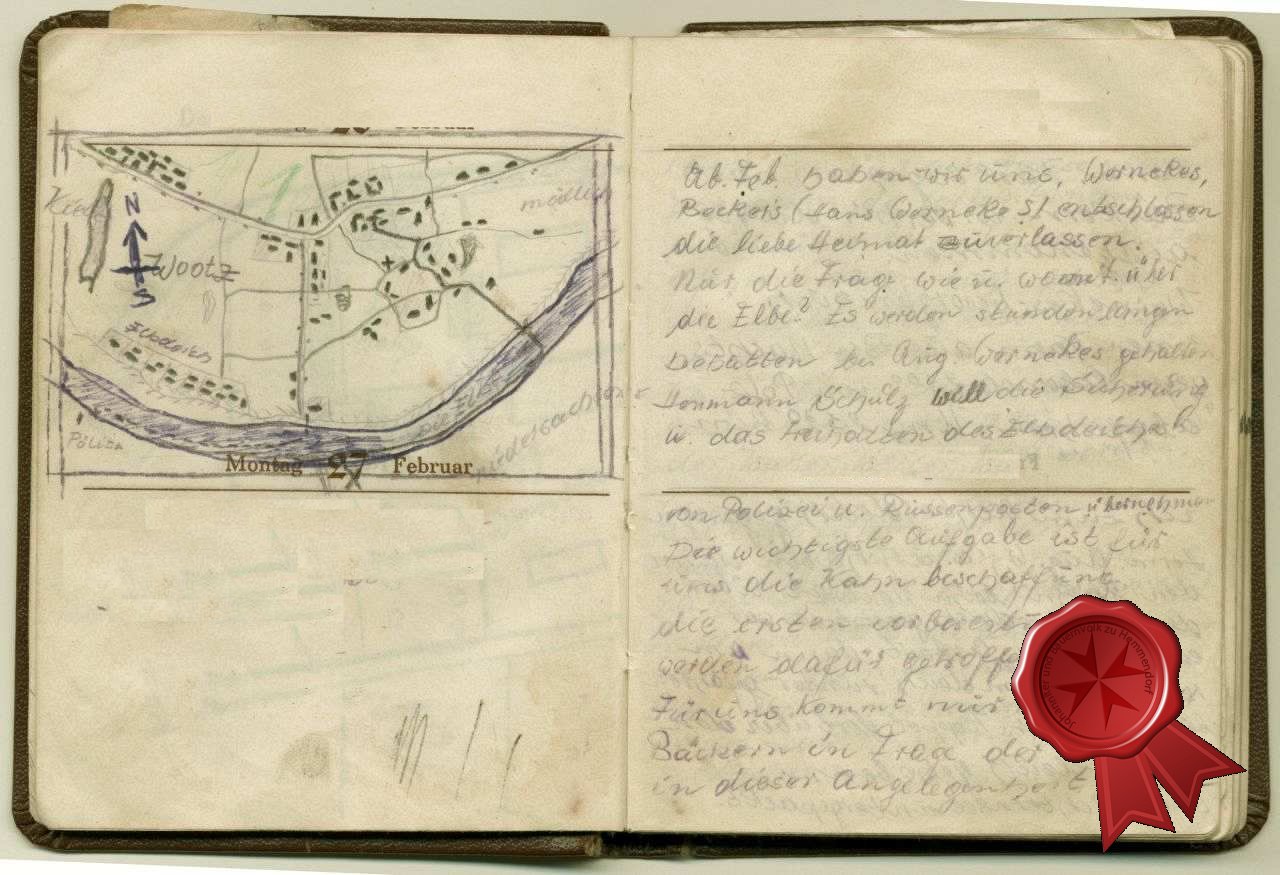 Februar
mödlich
N
Wootz
S
Elbdeich
Die Elbe
Niedersachsen
Pölitz
Montag 27 Februar
Ab. Feb haben wir uns, Wernekes,
Beckers (Hans Werneke S) entschlossen
die liebe Heimat zuverlassen.
Nur die Frage wie u. womit über
die Elbe? Es werden stundenlangen
Debatten bei Aug. Wernekes gehalten
Hermann Schulz will die Sicherung
u. das Freihalten des Elbdeiches
von Polizei u. Russenposten übernehmen
Die wichtigste Aufgabe ist für
uns die Kahn beschaffung
die ersten
werden dafür
Für uns kommt nur
Bäckern in Frage der
in dieser Angelegenheit
Johanniter und Bauernvolk zu Hemmendorf